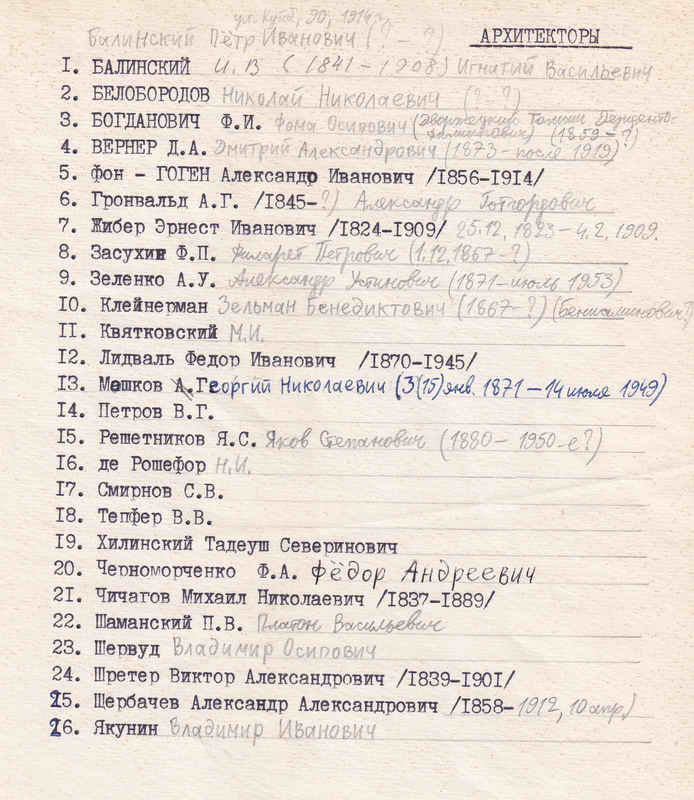 ул. Кубо, 30, 1914 г.
Балинский Пётр Иванович (? – ?) АРХИТЕКТОРЫ
I. БАЛИНСКИЙ И.В (1841 – 1908) Игнатий Васильевич
2. БЕЛОБОРОДОВ Николай Николаевич (? – ?)
3. БОГДАНОВИЧ Ф.И. Фома Осипович (1859 – ?)
4. ВЕРНЕР Д.А. Дмитрий Александрович (1873 – после 1919)
5. Фон - ГОГЕН Александр Иванович /I856-I9I4/
6. Гронвальд А.Г. /I845-?) Александр Готгардович
7. Жибер Эрнест Иванович /I824-I909/ 25.12.1823 – 4.2.1909.
8. Засухин Ф.П. Филарет Петрович (1.12.1867 - ?)
9. Зеленко А.У. Александр Устинович (1871 – июль 1953)
I0. Клейнерман Зельман Бенедиктович (1867 - ?) (Бениаминович?)
II. Квятковский М.И.
I2. Лидваль Федор Иванович /I870-I945/
I3. Мешков А.Георгий Николаевич (3(15) янв. 1871 – 14 июля 1949)
I4. Петров В.Г.
I5. Решетников Я.С. Яков Степанович (1880 – 1950-е?)
I6. де Рошефор Н.И.
I7. Смирнов С.В.
I8. Тепфер В.В.
I9. Хилинский Тадеуш Северинович
20. Черноморченко Ф.А. Фёдор Андреевич
2I. Чичагов Михаил Николаевич /I837-I889/
22. Шаманский П.В. Платон Васильевич
23. Шервуд Владимир Осипович
24. Шретер Виктор Александрович /I839-I90I/
25. Щербачев Александр Александрович /I858-1912, 10 апр.)
26. Якунин Владимир Иванович